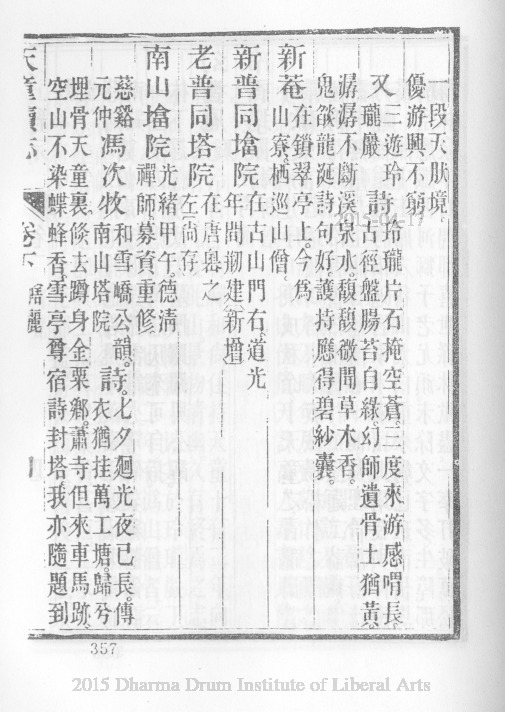 一段天趺境。
優游興不窮
又三遊玲
瓏巖詩玲瓏片石掩空蒼。三度來游感喟長。
古徑盤腸苔自綠。幻師遺骨土猶黃。
潺潺不斷溪泉水。馥馥微聞草木香。
鬼篆龍涎詩句好。護持應得碧紗囊。
新菴在鎖翠亭上。今為
山寮。栖巡山僧。
新普同墖院在古山門右。道光
年間剏建。新增
老普同塔院在唐嶴之
左。尚存。
南山墖院光緒甲午。德清
禪師募資重修
慈谿馮次牧和雪嶠公韻。詩七夕廻光夜已長。傳
元仲南山塔院衣猶挂萬工塘。歸兮
埋骨天童裏。倐去蹲身金粟鄉。蕭寺但來車馬跡。
空山不染蝶蜂香。雪亭尊宿詩封塔我亦隨題到
天童續志 卷下
357
2015-04-17
2015 Dharma Drum Institute of Liberal Arts